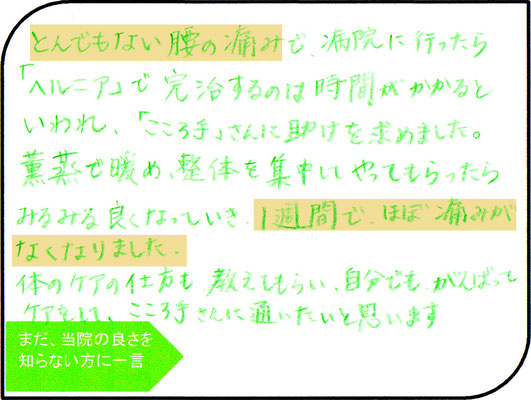 とんでもない腰の痛みで、病院に行ったら
「ヘルニア」で完治するのは時間がかかると
いわれ、「こころ手」さんに助けを求めました。
薫蒸で暖め、整体を集中してやってもらったら
みるみる良くなっていき、1週間で、ほぼ痛みが
なくなりました。
体のケアの仕方も教えてもらい、自分でもがんばって
ケアをして、こころ手さんに通いたいと思います
まだ、当院の良さを
知らない方に一言